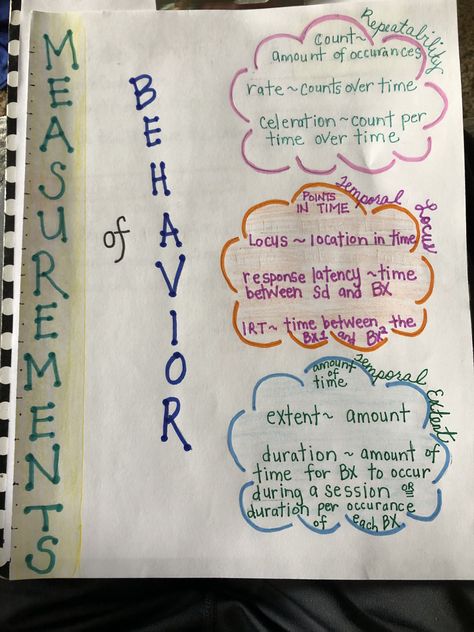 MEASUREMENTS
of
BEHAVIOR
Repeatability
count~
amount of occurances
rate ~ counts over time
celeration ~ count per
time over time
Temporal Locus
POINTS
IN TIME
Locus ~ location in time
response latency ~ time
between Sd and BX
IRT ~ time between the
BX1 and BX2
Temporal Extent
amount
of
time
extent ~ amount
duration ~ amount of
time for BX to occur
during a session OR
duration per occurance
of each BX.